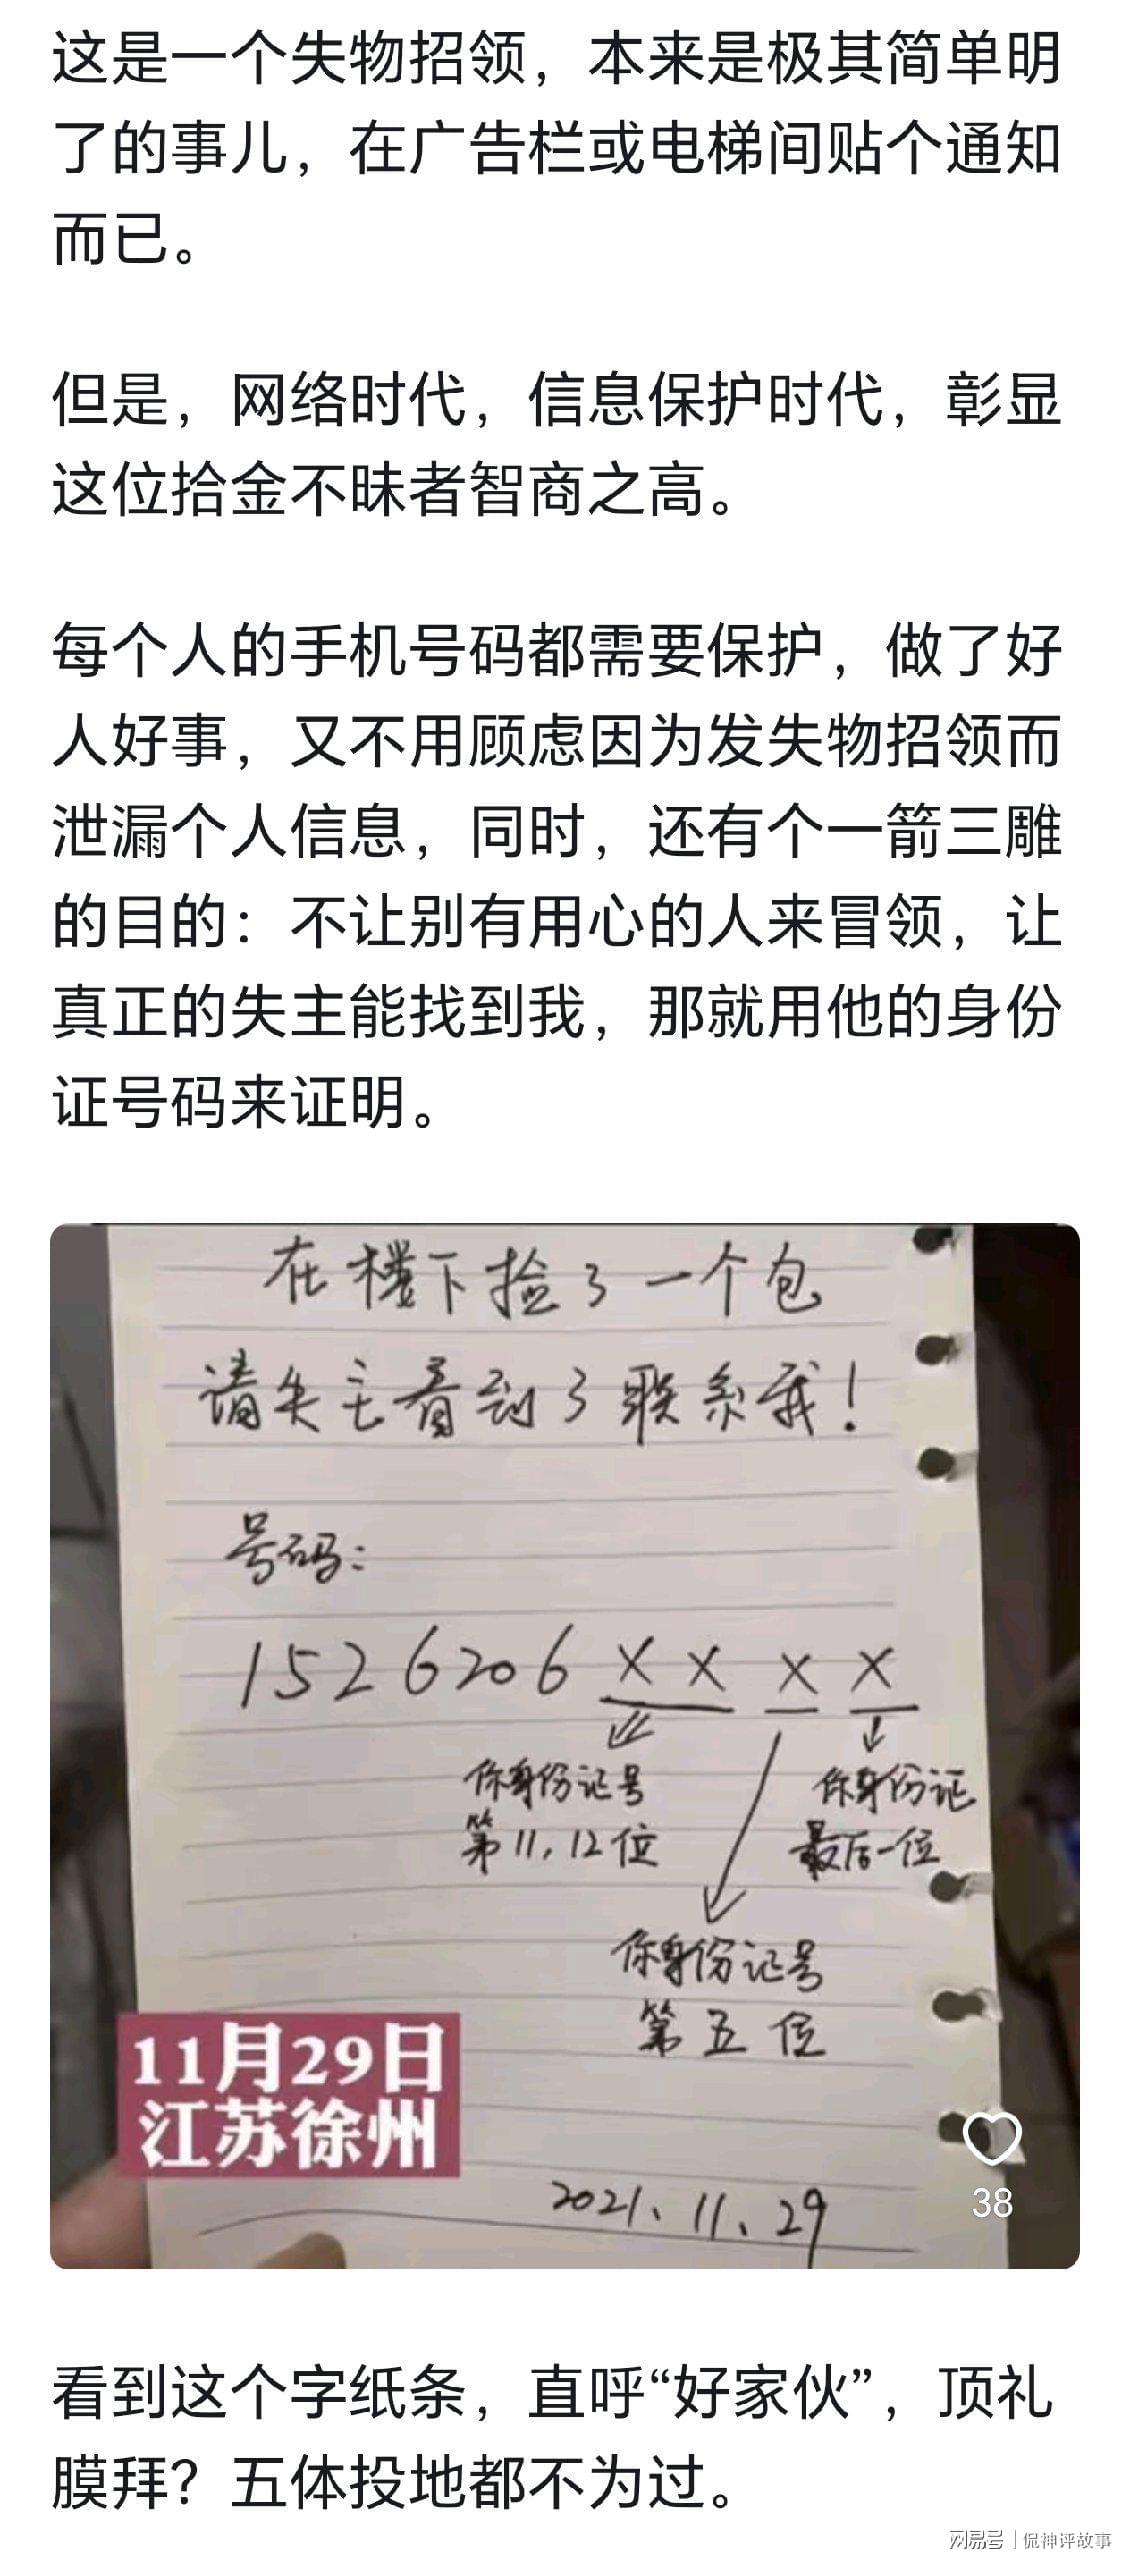 这是一个失物招领，本来是极其简单明
了的事儿，在广告栏或电梯间贴个通知
而已。
但是，网络时代，信息保护时代，彰显
这位拾金不昧者智商之高。
每个人的手机号码都需要保护，做了好
人好事，又不用顾虑因为发失物招领而
泄漏个人信息，同时，还有个一箭三雕
的目的：不让别有用心的人来冒领，让
真正的失主能找到我，那就用他的身份
证号码来证明。
在楼下捡了一个包
请失主看到了联系我！
号码：
1526206XXXX
你身份证号
第11,12位
你身份证
最后一位
你身份证号
第五位
11月29日
江苏徐州
2021、11、29
38
看到这个字纸条，直呼“好家伙”，顶礼
膜拜？五体投地都不为过。
网易号 | 侃神评故事